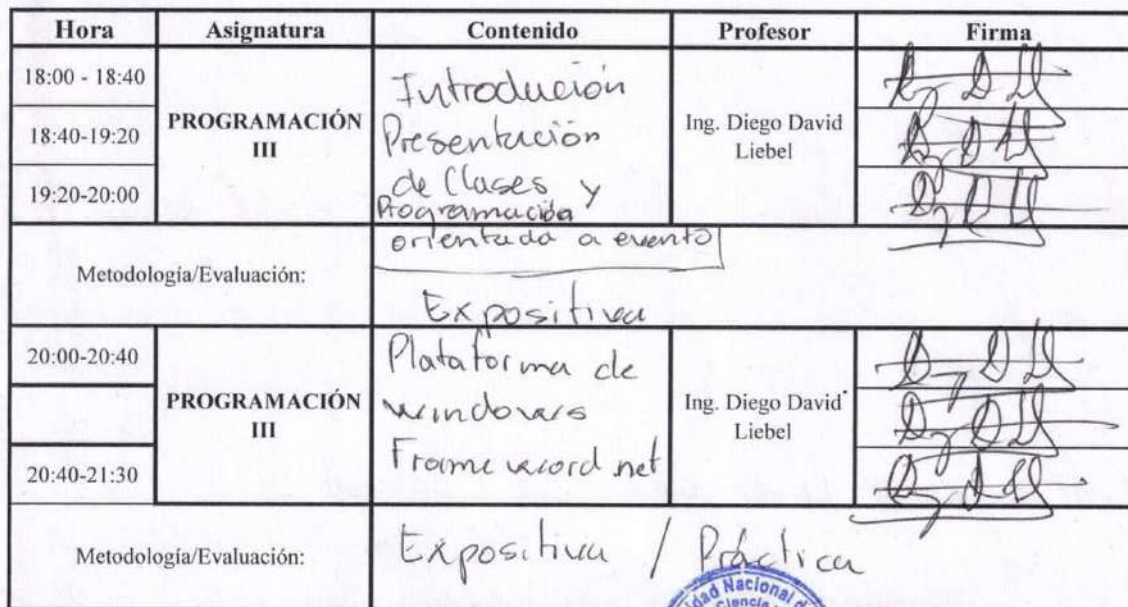 Hora Asignatura Contenido Profesor Firma
18:00 - 18:40
18:40-19:20
19:20-20:00
PROGRAMACIÓN
III
Introdución
Presentación
de Clases y
Programación
orientada a evento
Ing. Diego David
Liebel
Metodología/Evaluación:
Expositiva
20:00-20:40
20:40-21:30
PROGRAMACIÓN
III
Plataforma de
windows
Frame word net
Ing. Diego David
Liebel
Metodología/Evaluación:
Expositiva / Práctica
Nacional